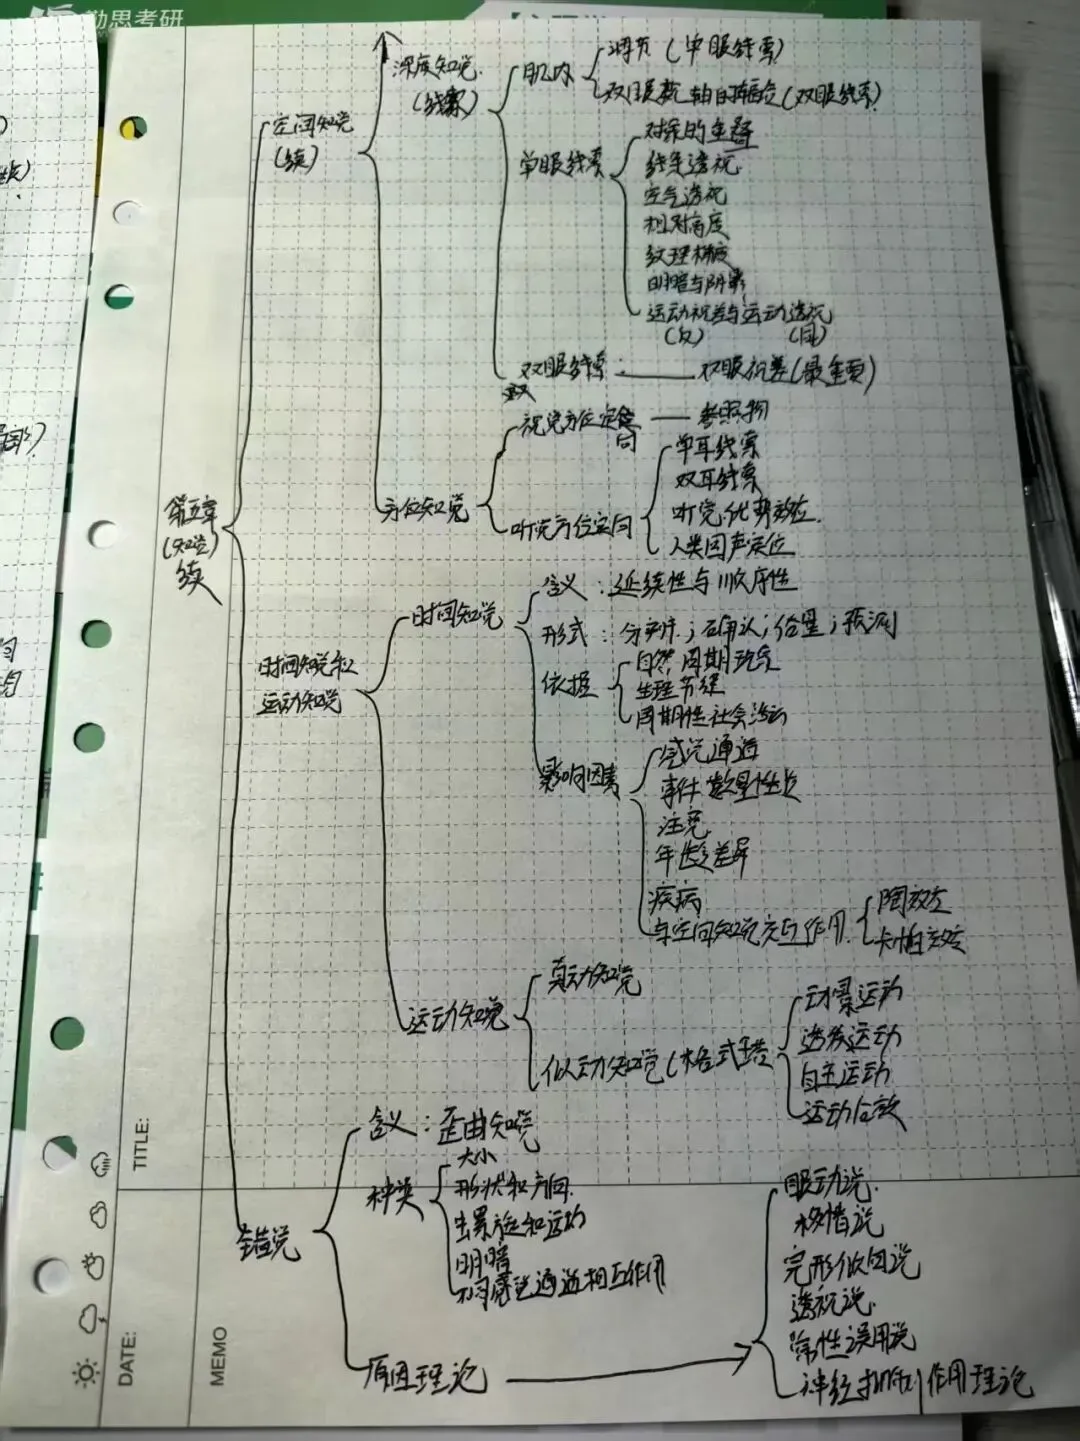 勤思考研
第五章
(知觉)
续
空间知觉
(续)
深度知觉
(线索)
肌肉
调节(单眼线索)
双眼视轴的辐合(双眼线索)
单眼线索
对象的
线条透视
空气透视
相对高度
纹理梯度
明暗与阴影
运动视差与运动透视
(反) (同)
双眼线索
双眼视差(最重要)
方位知觉
视觉方位定向
参照物
听觉方位定向
单耳线索
双耳线索
听觉优势效应
人类回声定位
时间知觉和
运动知觉
时间知觉
含义:延续性与顺序性
形式:分辨;确认;估量;预测
依据
自然周期现象
生理节律
周期性社会活动
影响因素
感觉通道
事件数量性质
注意
年龄差异
疾病
与空间知觉交互作用
陶效应
卡帕效应
运动知觉
真动知觉
似动知觉(格式塔
动景运动
诱发运动
自主运动
运动后效
错觉
含义:歪曲知觉
种类
大小
形状和方向
重累 和运动
明暗
不同感觉通道相互作用
原因理论
眼动说
移情说
完形倾向说
透视说
常性误用说
神经抑制作用理论
TITLE:
DATE:
MEMO